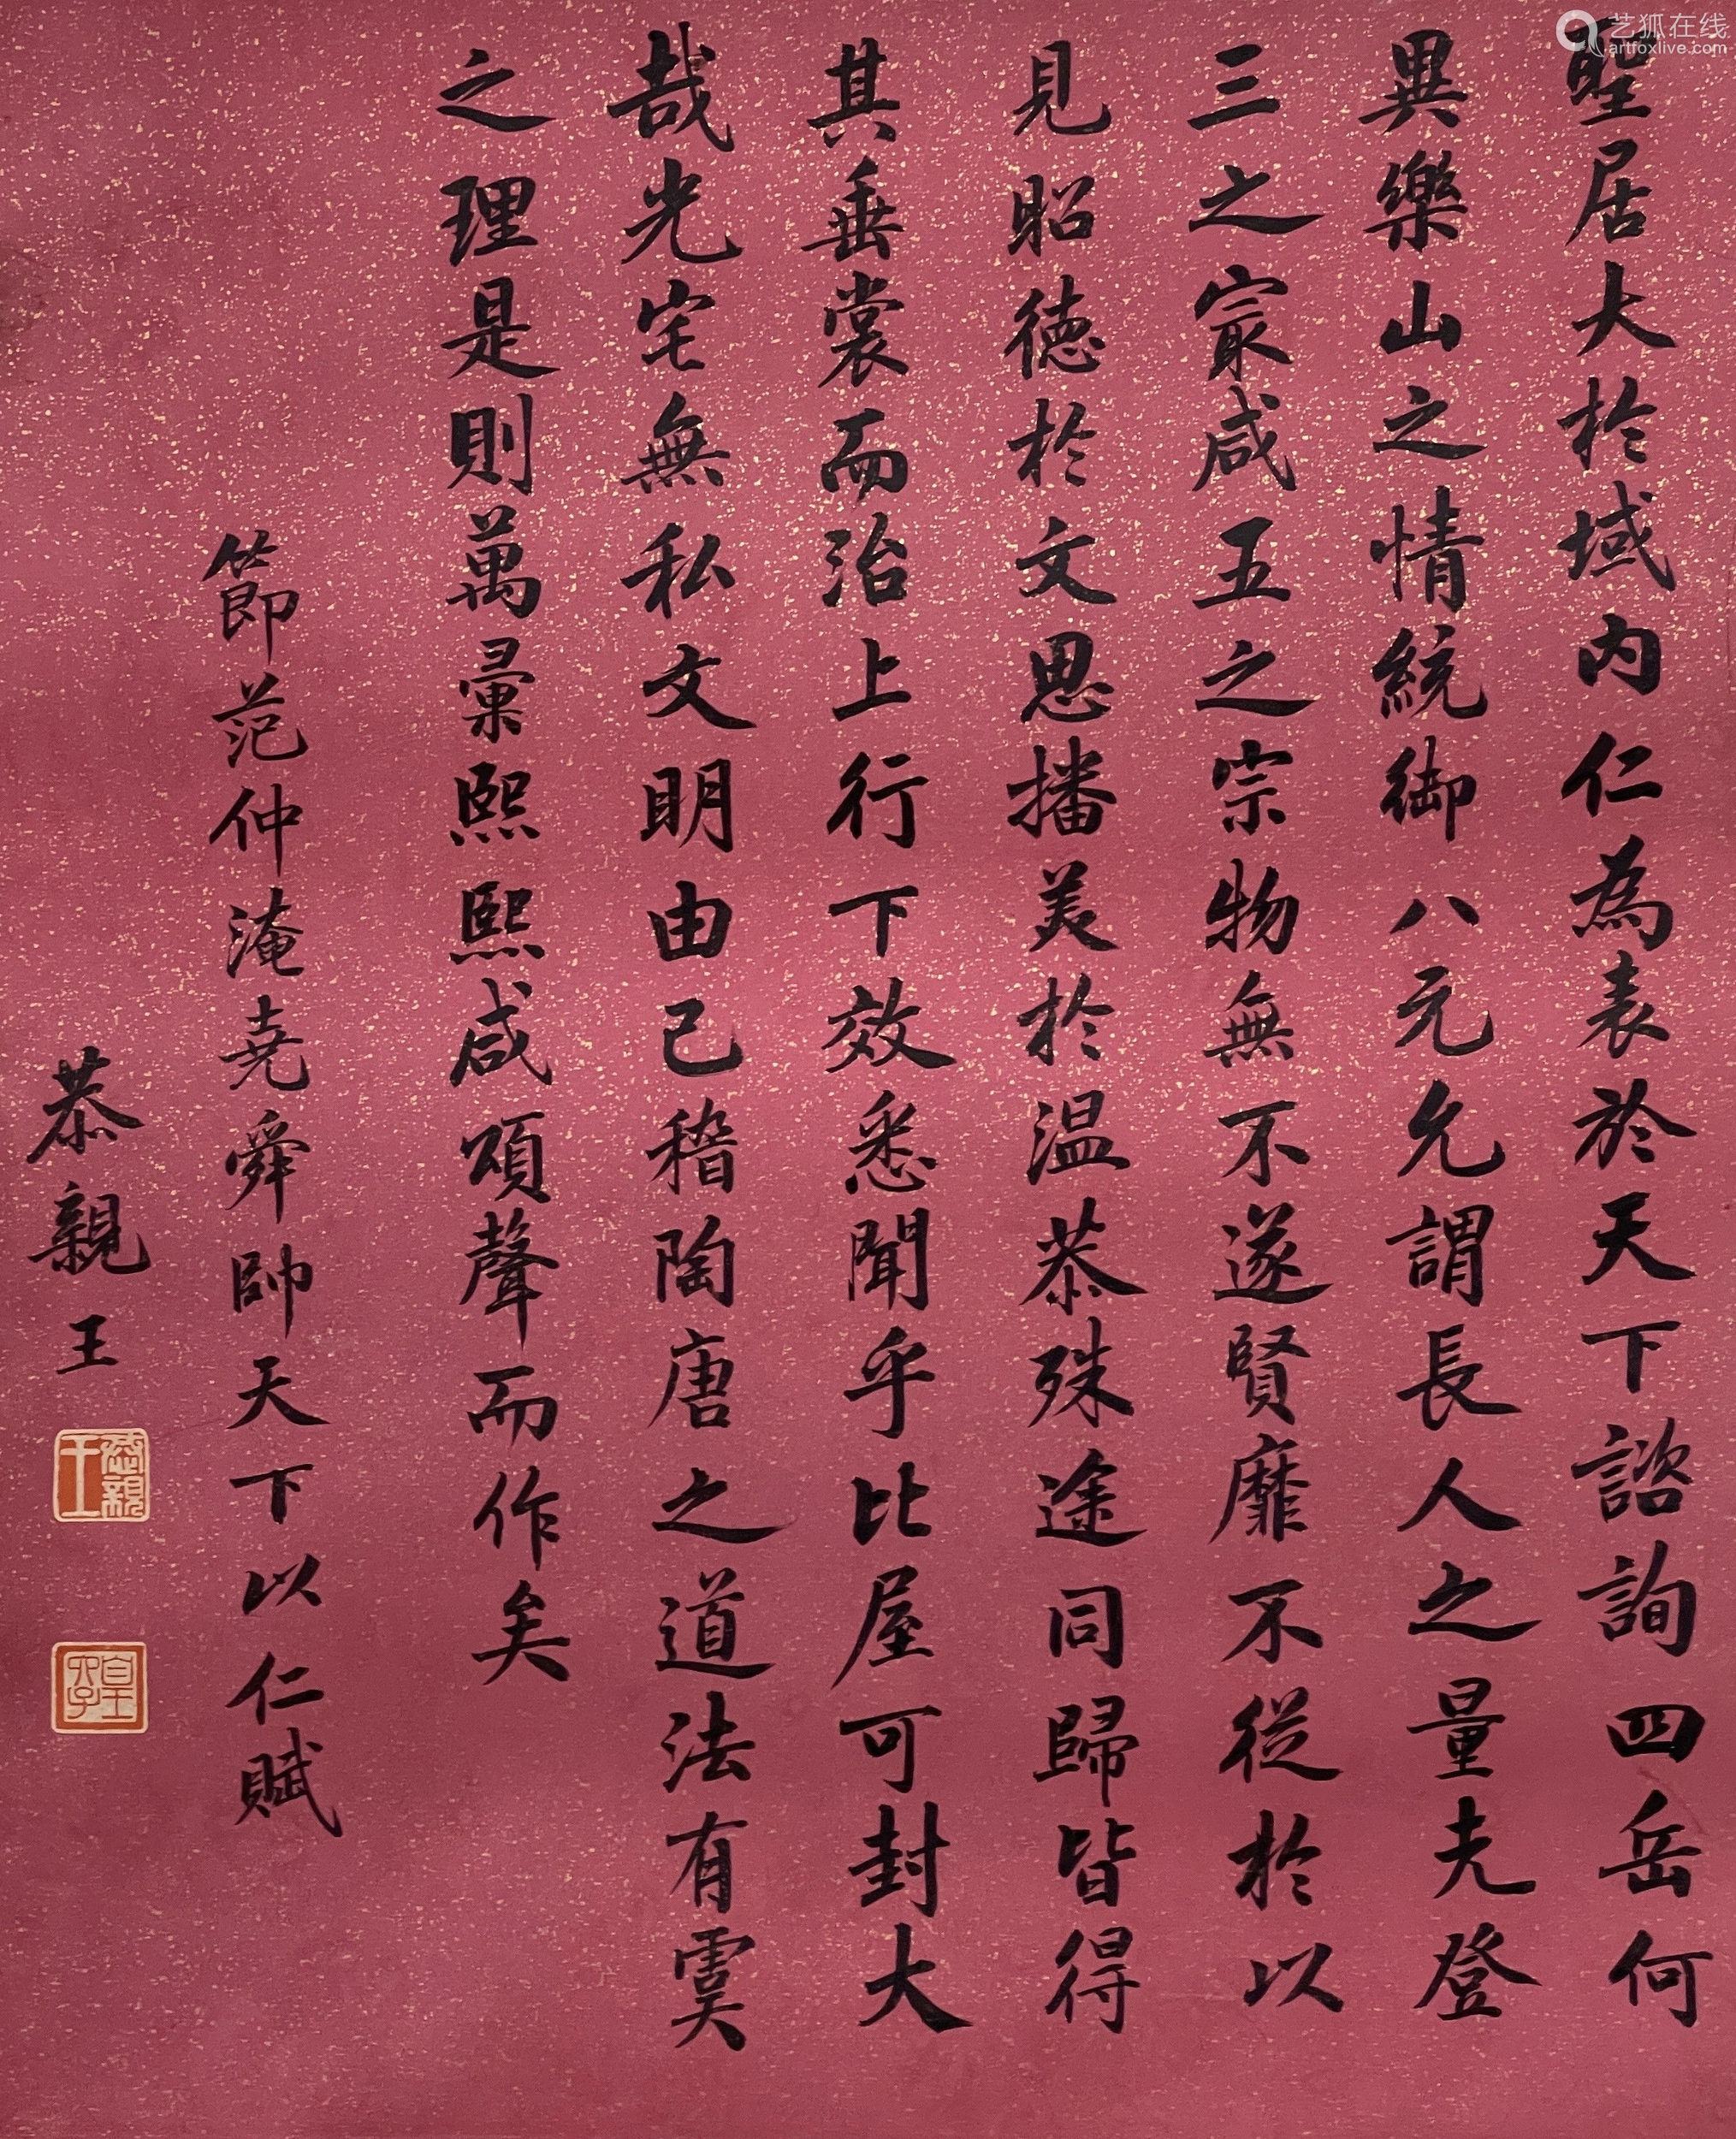 聖居大於域内仁為表於天下諮詢四岳何
異樂山之情統御八元允謂長人之量尤登
三之㝡咸五之宗物無不遂賢靡不從於以
見昭德於文思播美於温恭殊途同歸皆得
其垂裳而治上行下效悉聞乎比屋可封大
哉光宅無私文明由己稽陶唐之道法有虞
之理是則萬彙熙熙咸頌聲而作矣
節范仲淹堯舜帥天下以仁賦
恭親王
恭親王
皇六子
艺狐在线
artfoxlive.com